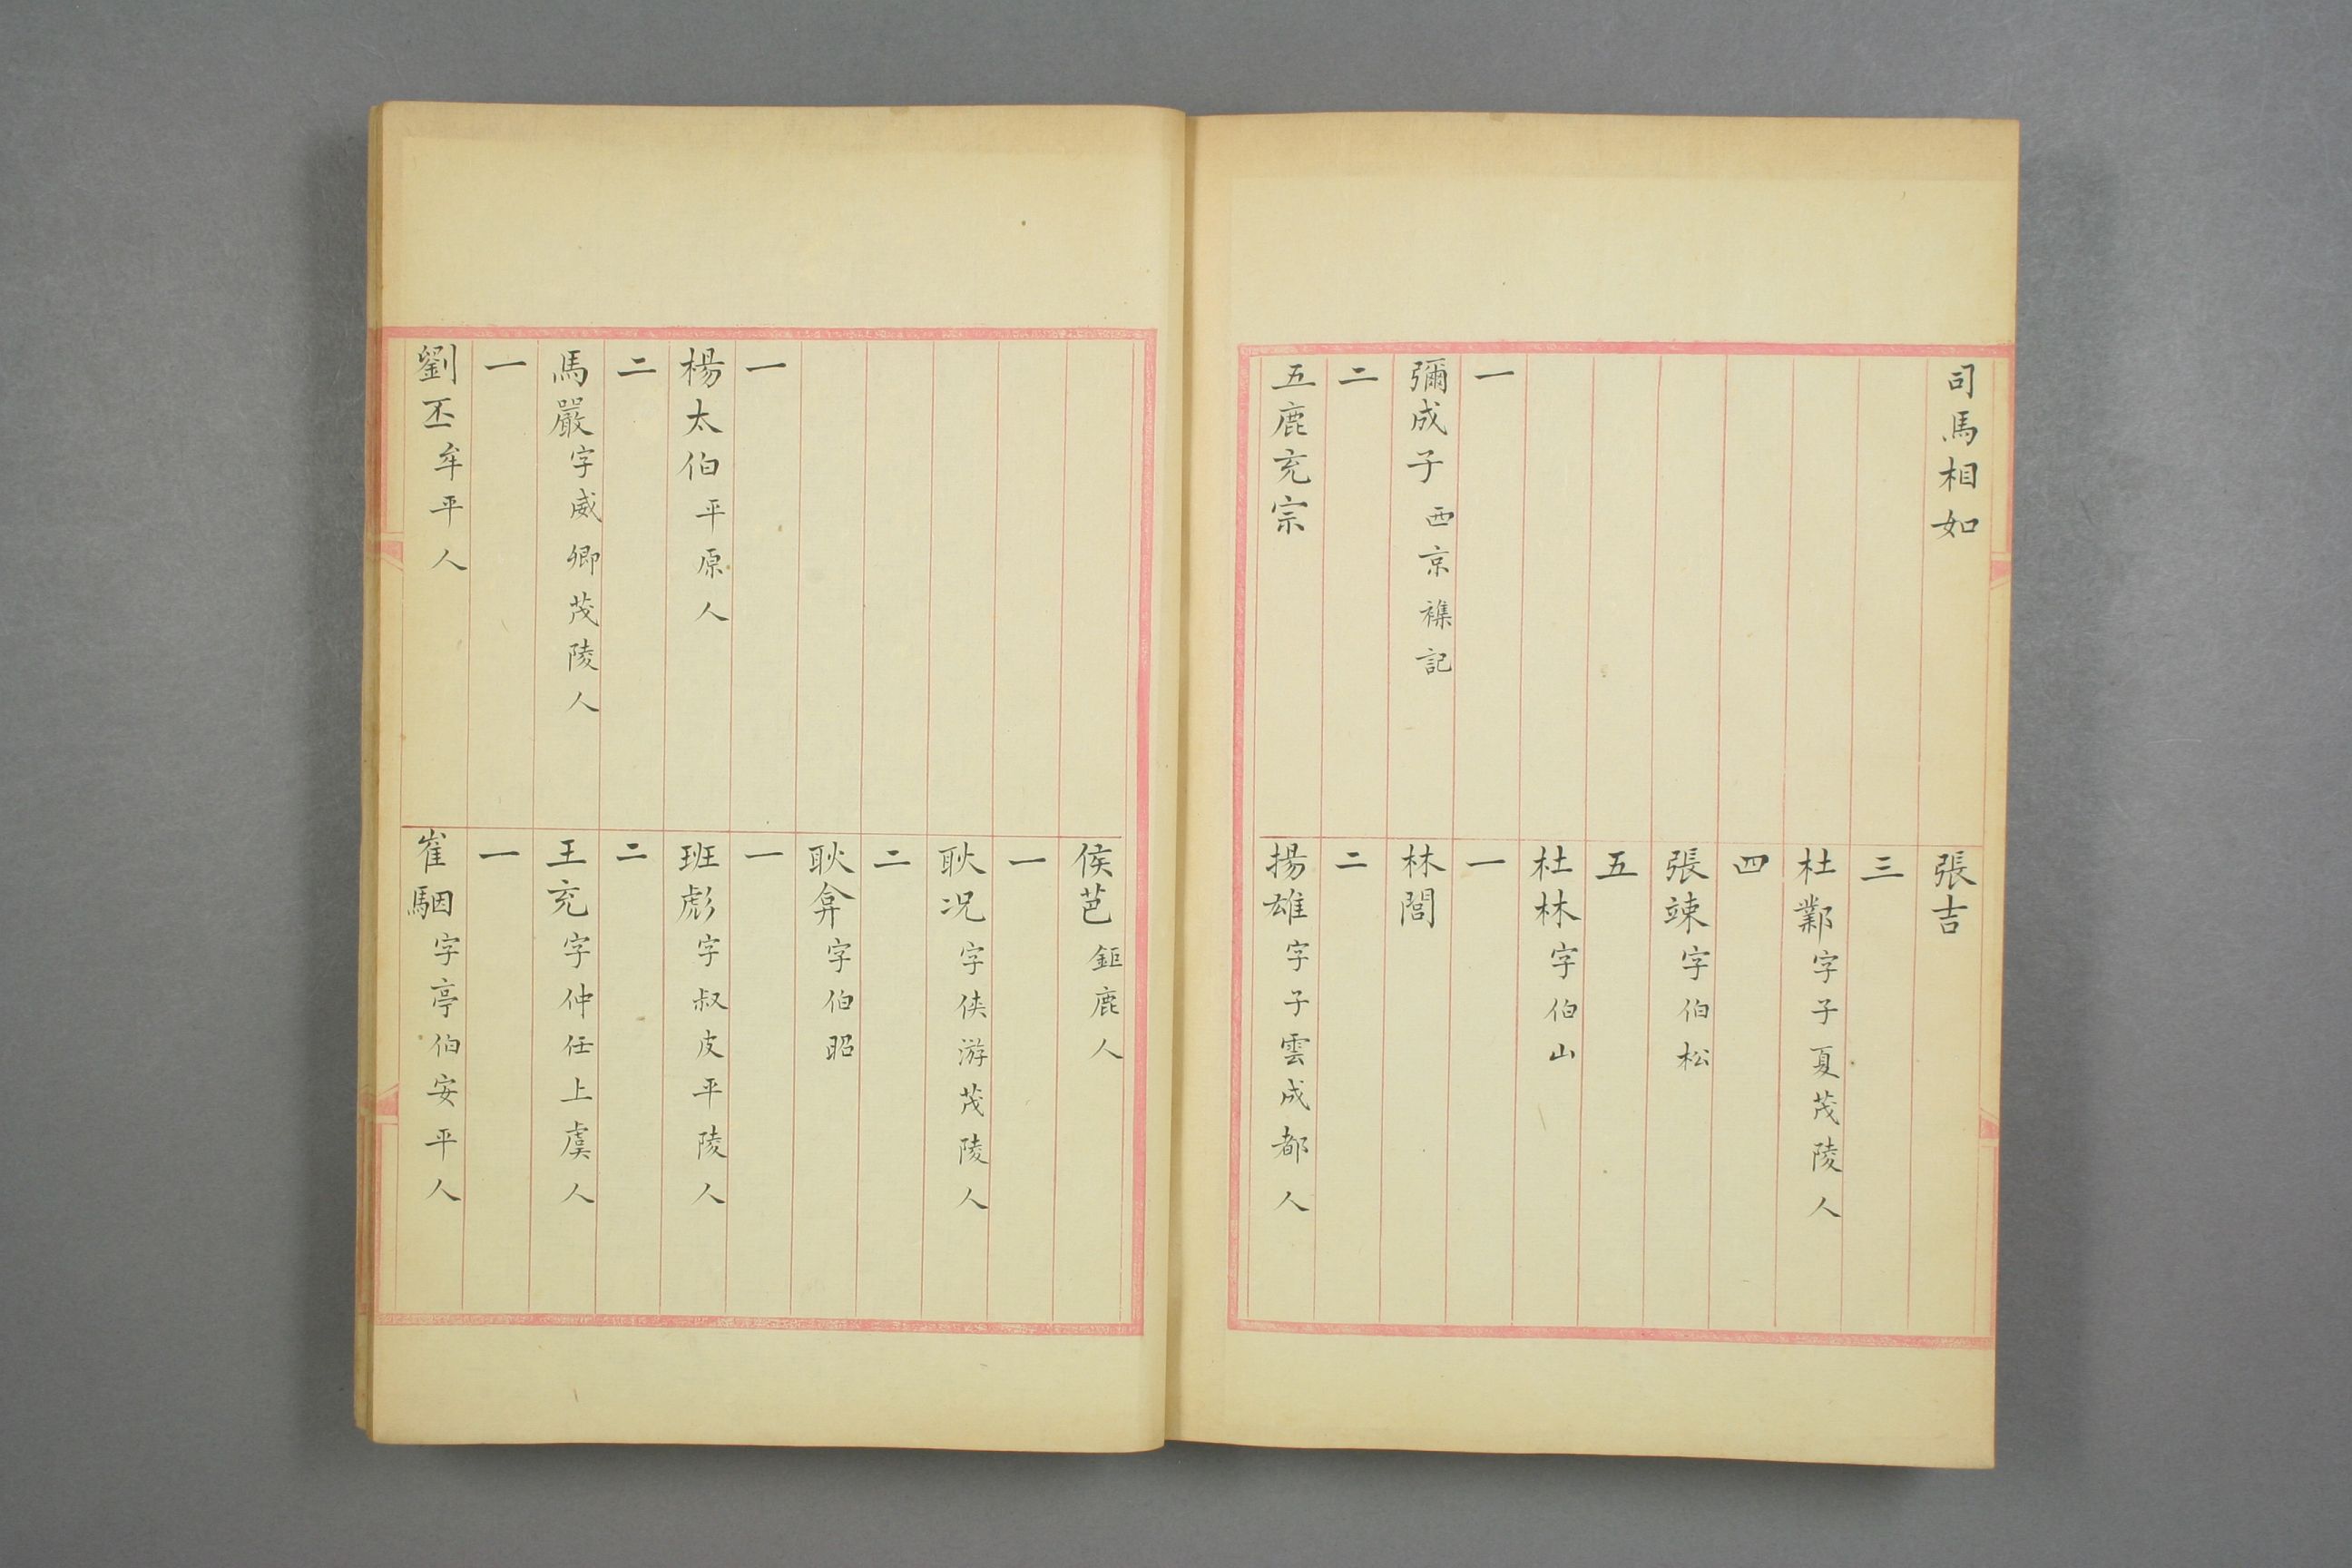 司馬相如
一
彌成子西京襍記
二
五鹿充宗
張吉
三
杜鄴字子夏茂陵人
四
張竦字伯松
五
杜林字伯山
一
林閭
二
揚雄字子雲成都人
一
楊太伯平原人
二
馬嚴字威卿茂陵人
一
劉丕牟平人
侯芭鉅鹿人
一
耿况字俠游茂陵人
二
耿弇字伯昭
一
班彪字叔皮平陵人
二
王充字仲任上虞人
一
崔駰字亭伯安平人